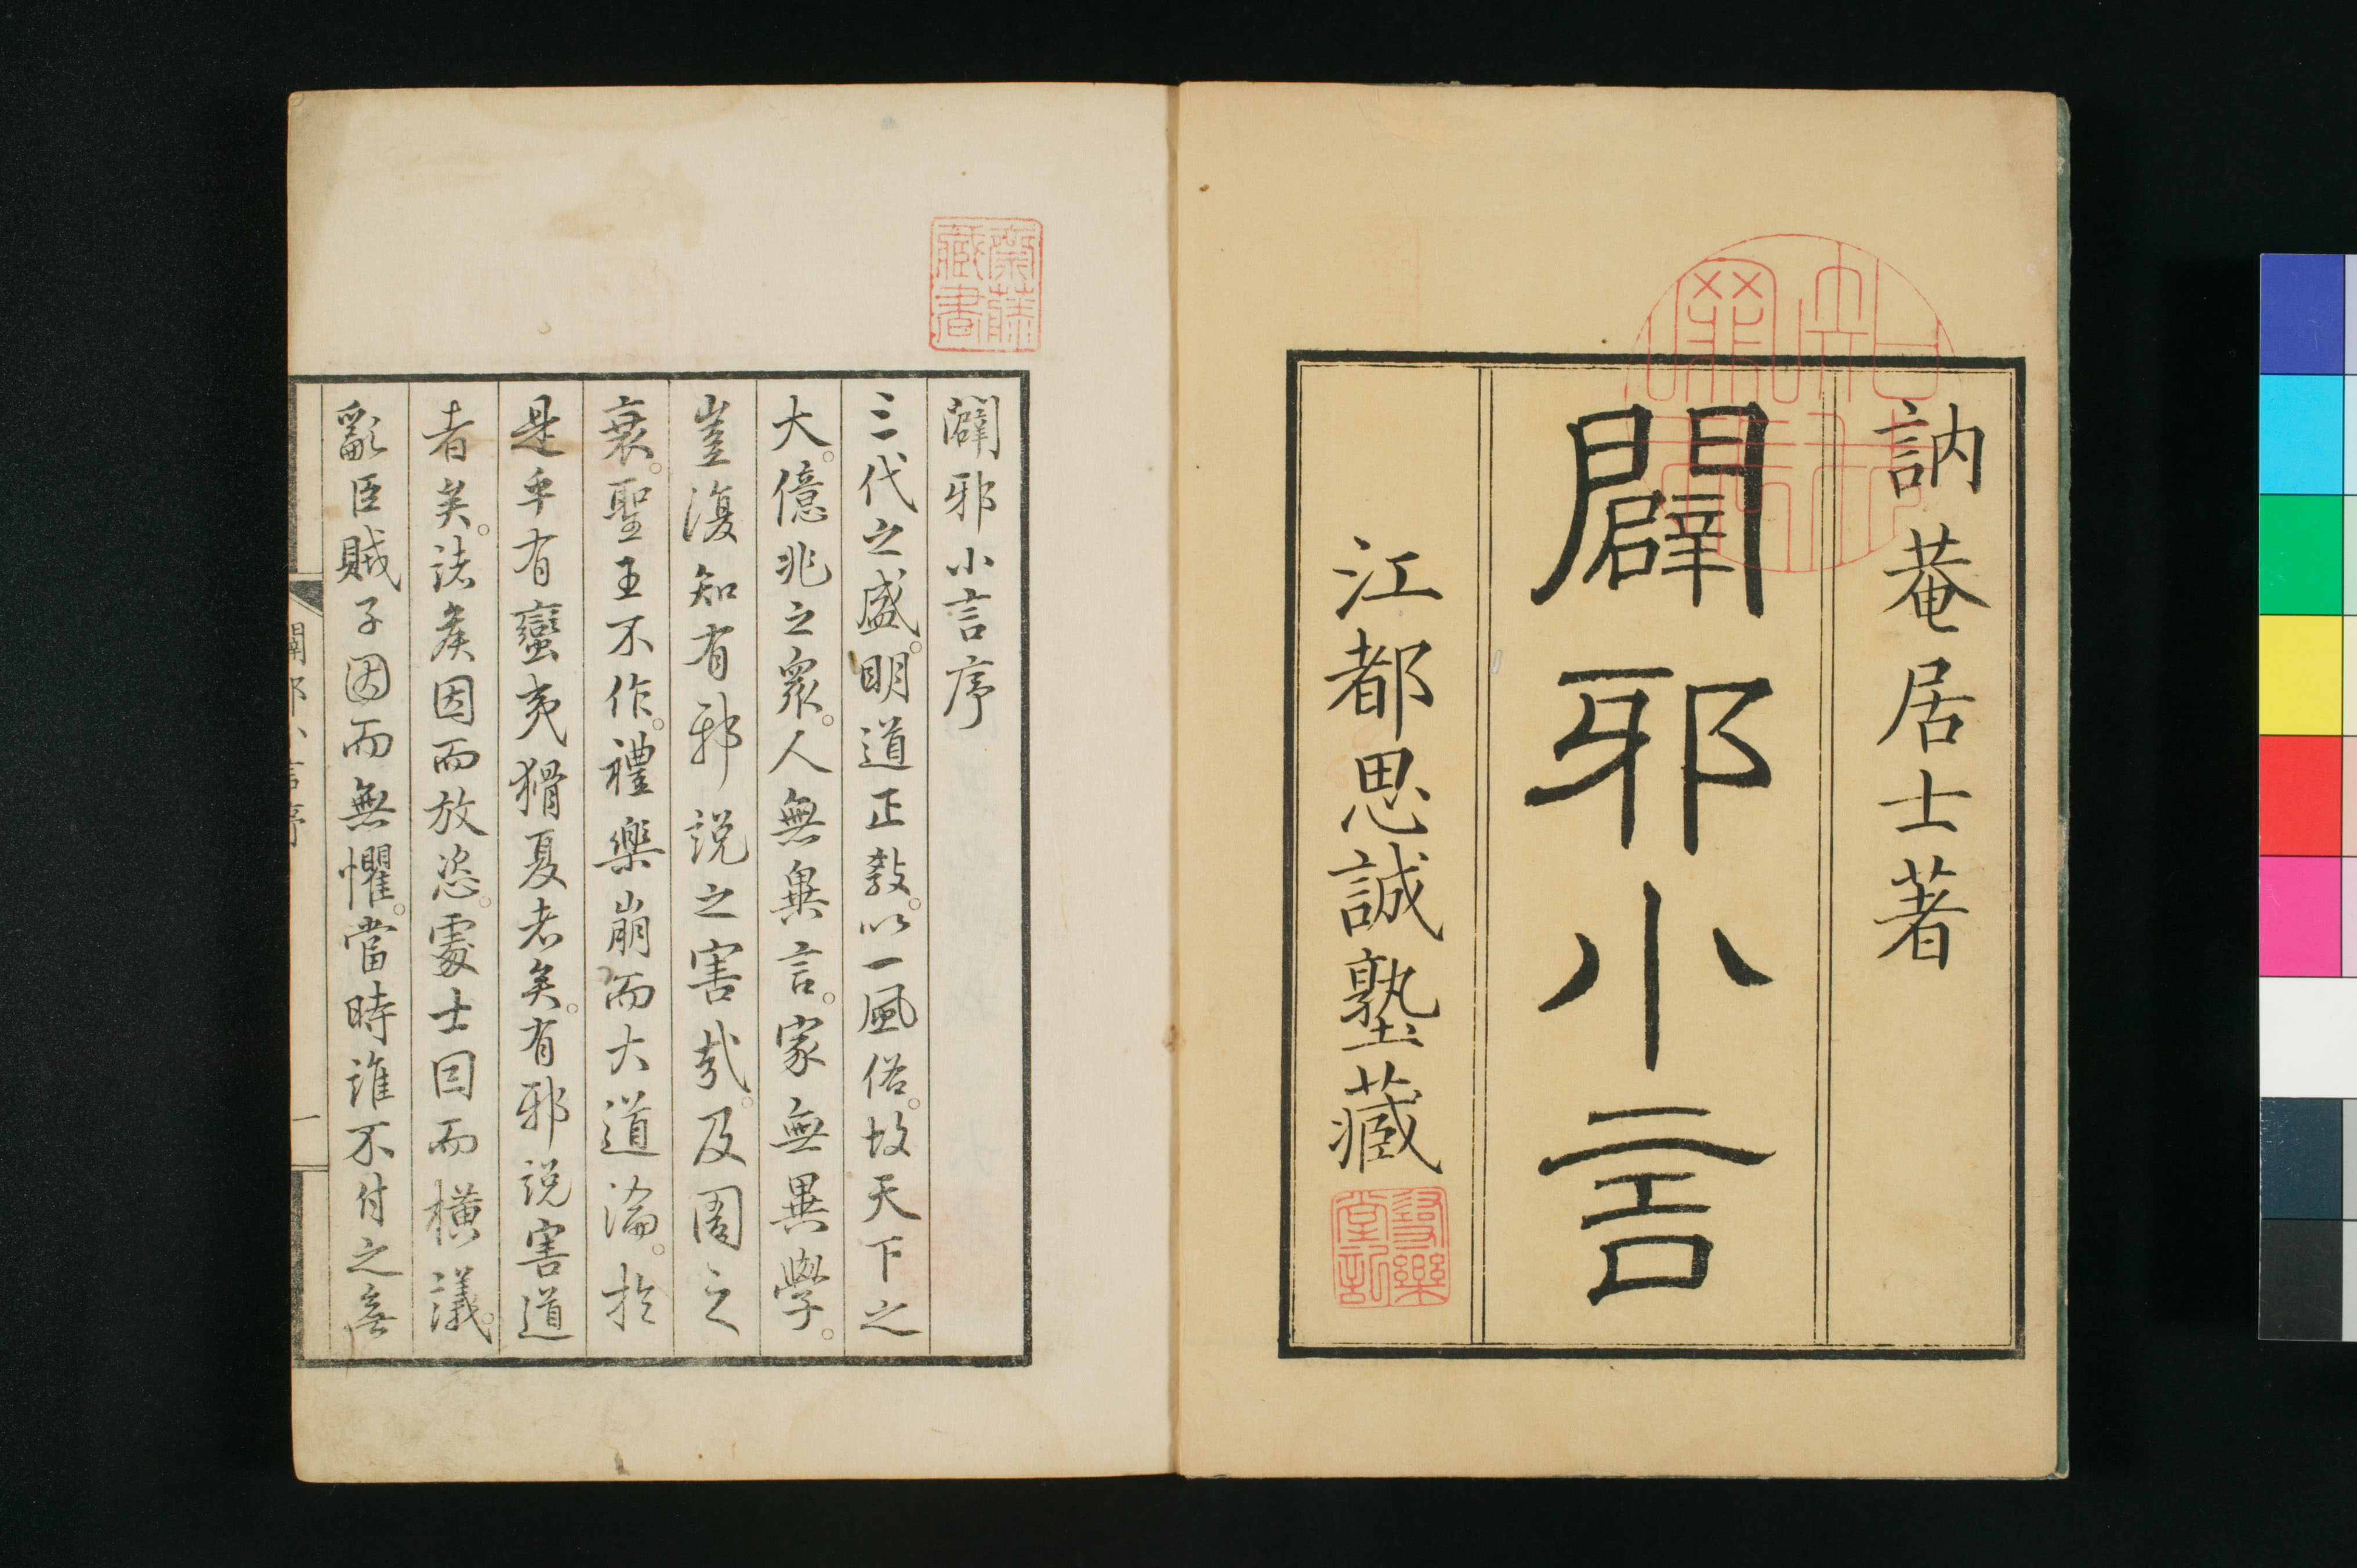 訥菴居士著
闢邪小言
江都思誠塾藏
闢邪小言序
三代之盛。明道正敎。以一風俗。故天下之
大。億兆之衆。人無異言。家無異學。
豈復知有邪說之害哉。及周之
衰。聖王不作。禮樂崩而大道淪。於
是乎有蠻夷猾夏者矣。有邪説害道
者矣。諸侯因而放恣。處士因而橫議。
亂臣賊子因而無懼。當時誰不付之無
闢邪小言序
一